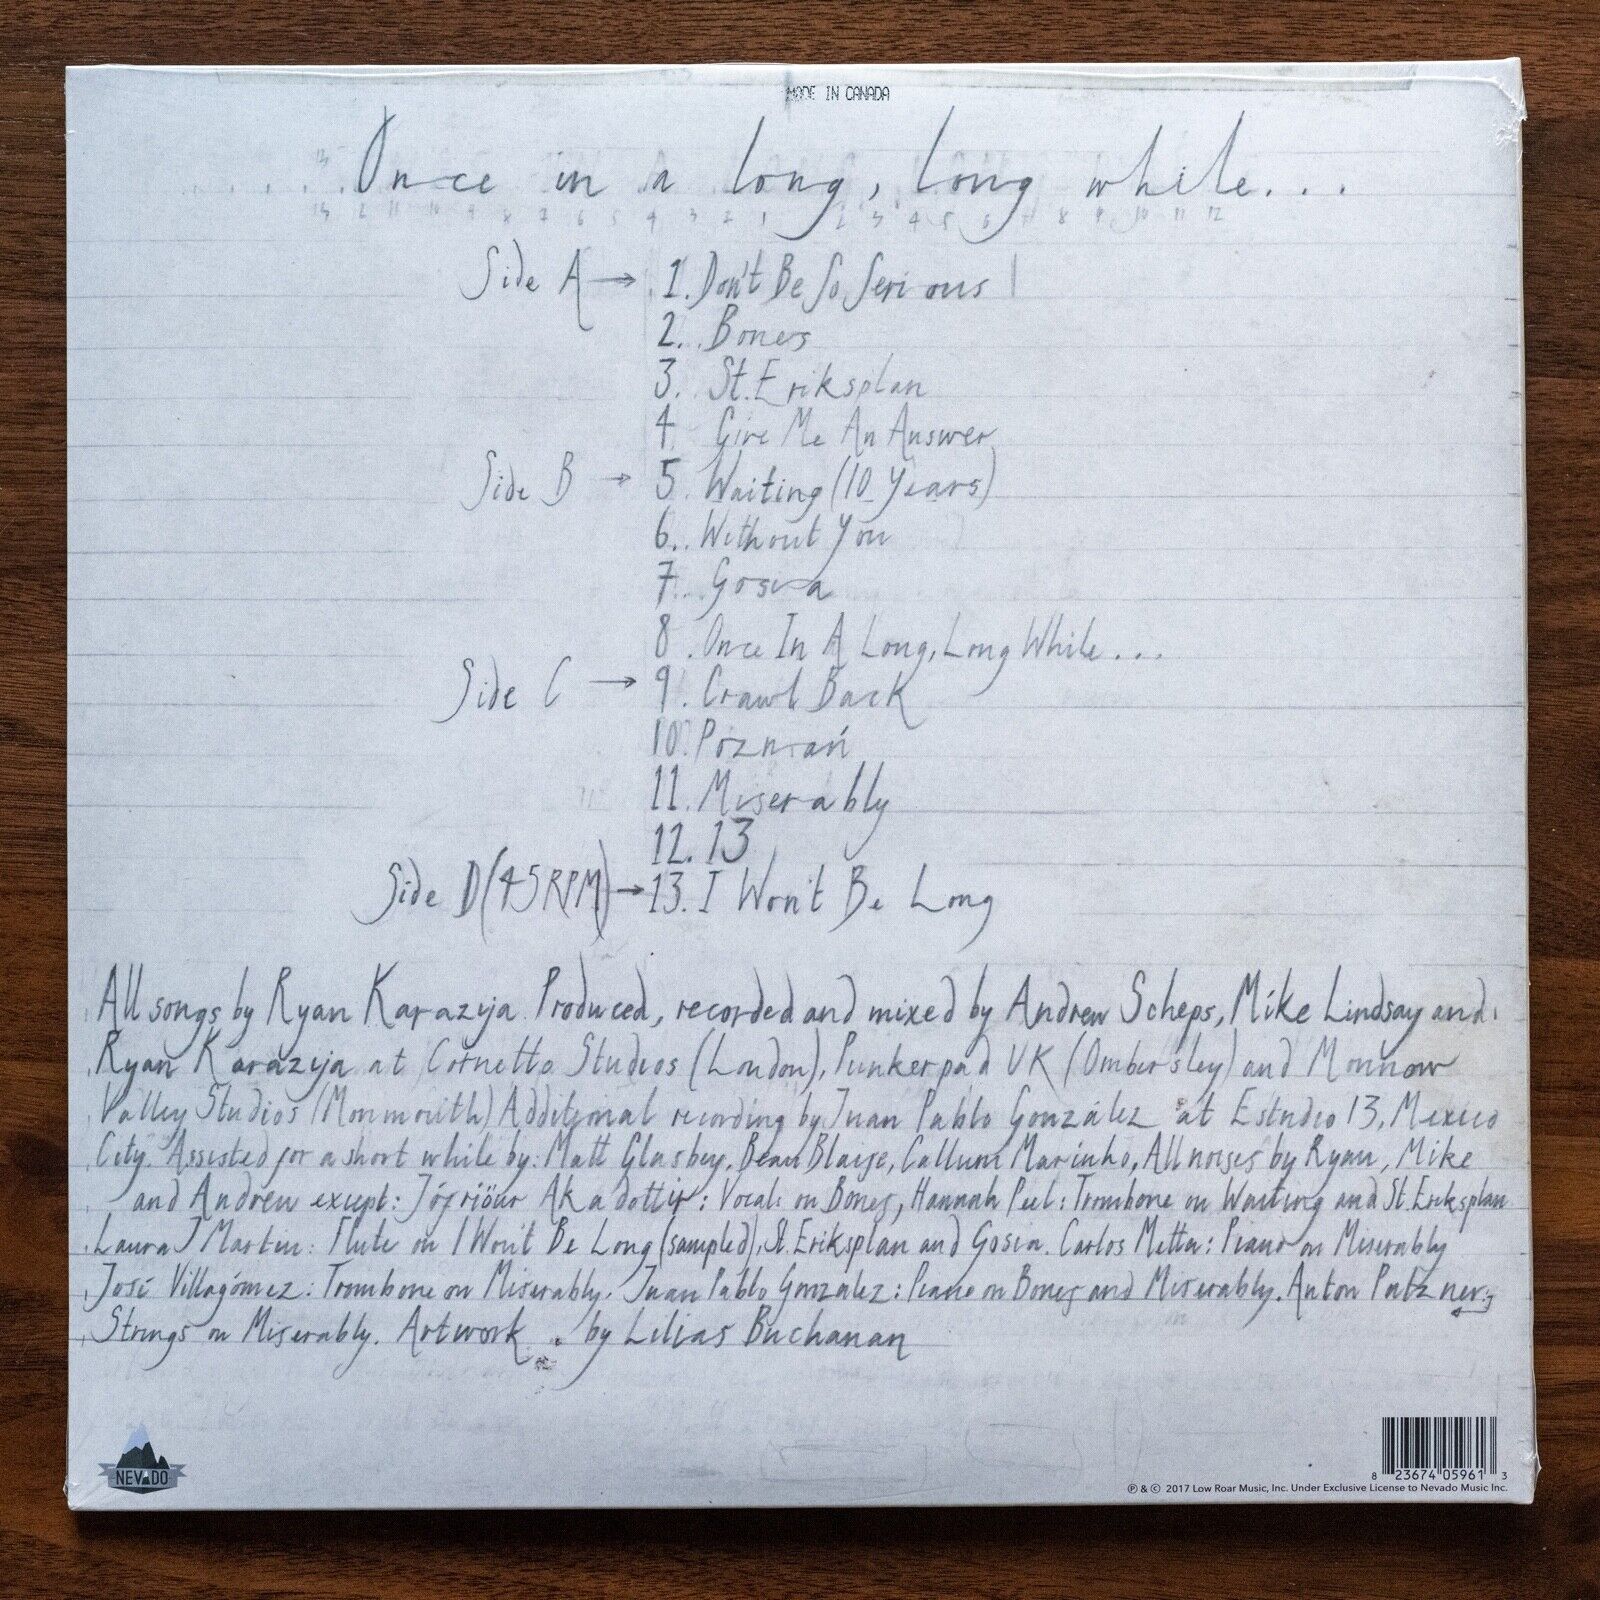 MADE IN CANADA
Once in a long, long while...
13 2 11 10 9 8 7 6 5 4 3 2 1 2 3 4 5 6 7 8 9 10 11 12
Side A → 1. Don't Be So Serious
2. Bones
3. St. Eriksplan
4 Give Me An Answer
Side B → 5. Waiting (10 Years)
6. Without You
7. Gosia
8. Once In A Long, Long While...
Side C → 9. Crawl Back
10. Poznań
11. Miserably
12. 13
Side D (45RPM) → 13. I Won't Be Long
All songs by Ryan Karazija Produced, recorded and mixed by Andrew Scheps, Mike Lindsay and
Ryan Karazija at Cornetto Studios (London), Punkerpad UK (Ombersley) and Monnow
Valley Studios (Monmouth) Additional recording by Juan Pablo González at Estudio 13, Mexico
City. Assisted for a short while by: Matt Glasbey, Bean Blaise, Callum Marinho, All noises by Ryan, Mike
and Andrew except: Jófríður Ákadóttir: Vocals on Bones, Hannah Peel: Trombone on Waiting and St. Eriksplan
Laura J Martin: Flute on I Won't Be Long (sampled), St. Eriksplan and Gosia. Carlos Metta: Piano on Miserably
José Villagómez: Trombone on Miserably. Juan Pablo González: Piano on Bones and Miserably. Anton Patzner:
Strings on Miserably. Artwork by Lilias Buchanan
NEVADO
8 23674 05961 3
℗ & © 2017 Low Roar Music, Inc. Under Exclusive License to Nevado Music Inc.